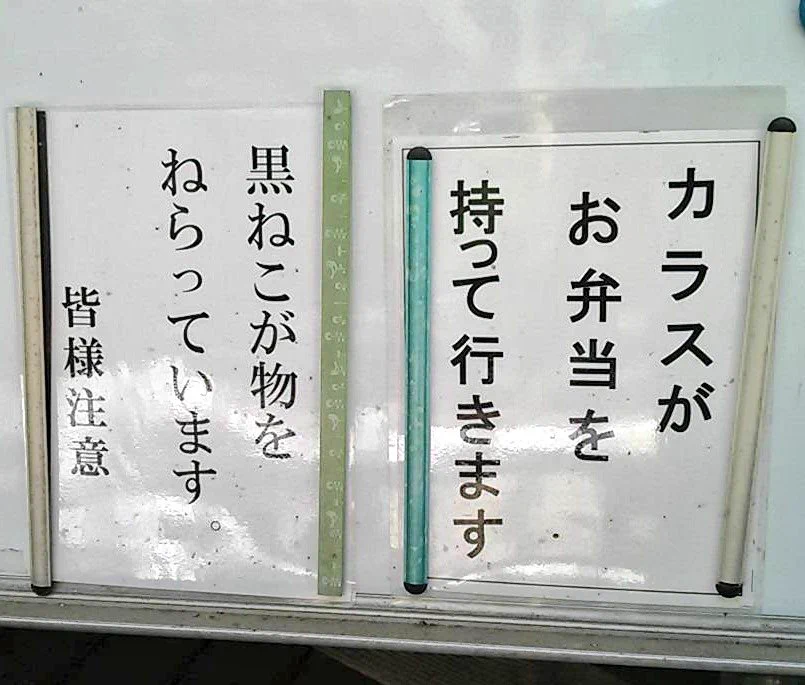 カラスが
お弁当を
持って行きます
黒ねこが物を
ねらっています。
皆様注意